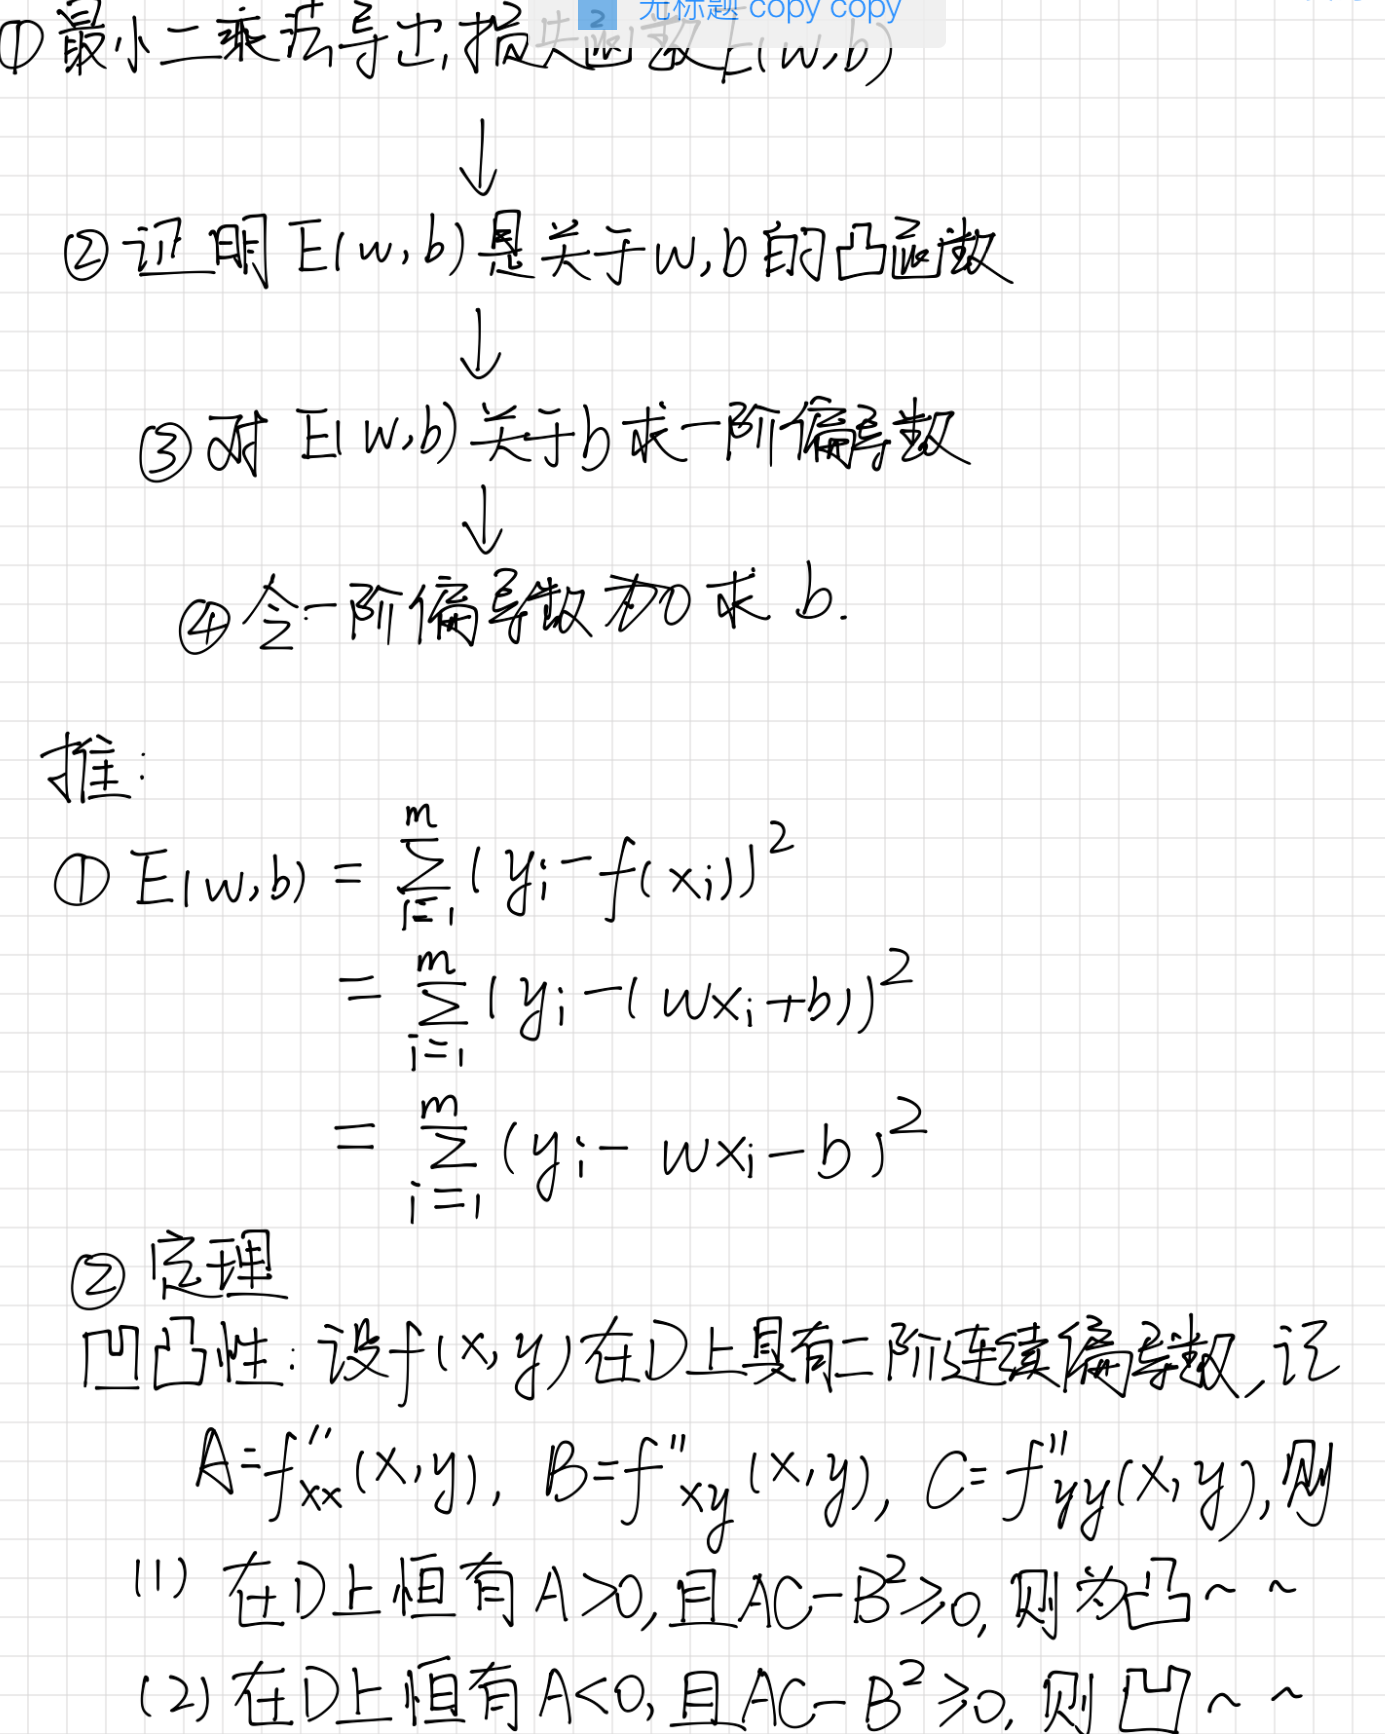 2 无标题 copy copy
① 最小二乘法导出,损失函数E(w,b)
↓
② 证明 E(w,b)是关于w,b的凸函数
↓
③ 对 E(w,b)关于b求一阶偏导数
↓
④ 令一阶偏导数为0求 b.
推:
① E(w,b) = \sum_{i=1}^{m} (y_i - f(x_i))^2
= \sum_{i=1}^{m} (y_i - (wx_i + b))^2
= \sum_{i=1}^{m} (y_i - wx_i - b)^2
② 定理
凹凸性: 设f(x,y)在D上具有二阶连续偏导数,记
A=f''_{xx}(x,y), B=f''_{xy}(x,y), C=f''_{yy}(x,y),则
(1) 在D上恒有A>0,且AC-B²≥0,则为凸~ ~
(2) 在D上恒有A<0,且AC-B²≥0,则凹~ ~